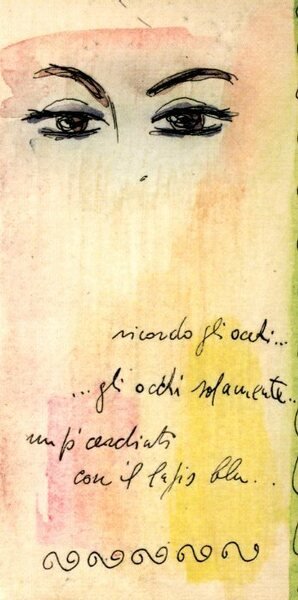 ricordo gli occhi...
...gli occhi solamente..
un pò cerchiati
con il lapis blu...